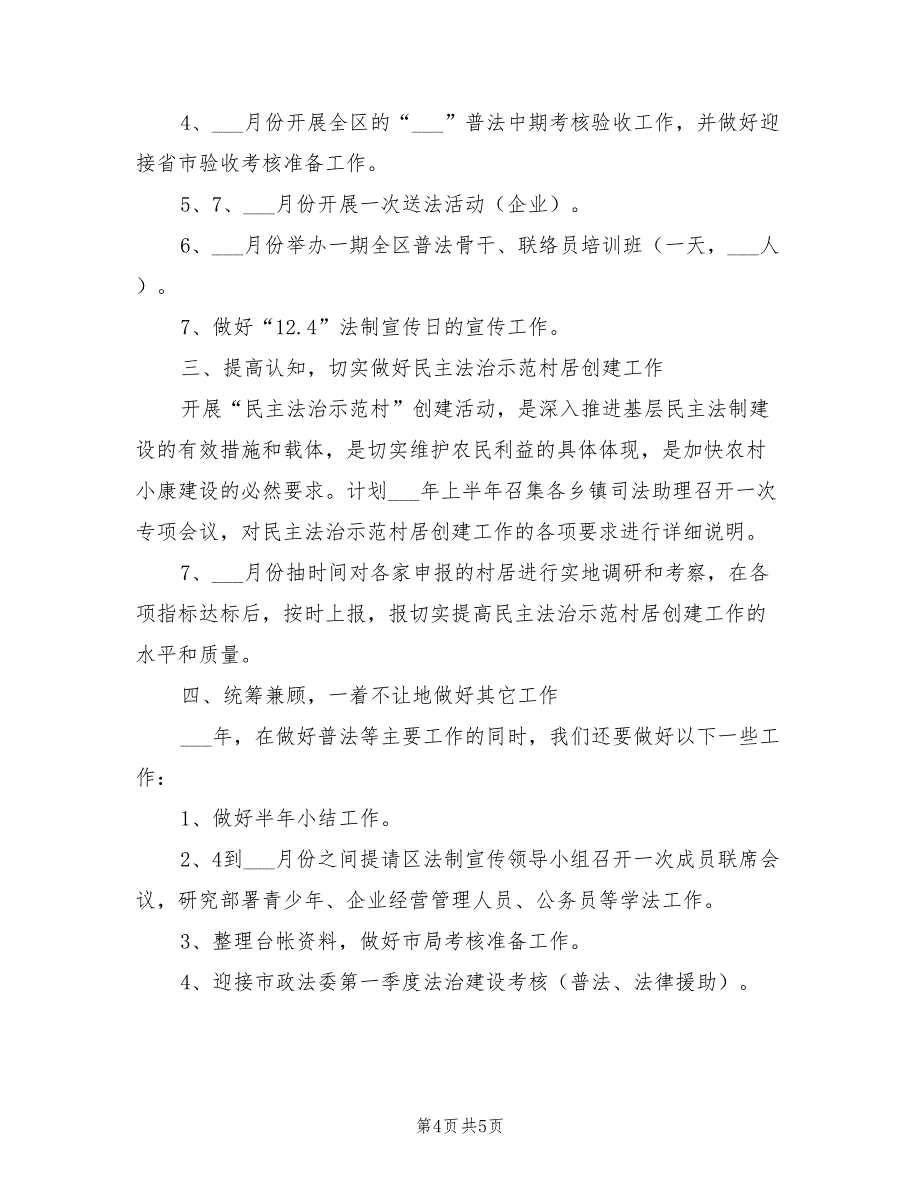 4、___月份开展全区的“___”普法中期考核验收工作，并做好迎
接省市验收考核准备工作。
5、7、___月份开展一次送法活动（企业）。
6、___月份举办一期全区普法骨干、联络员培训班（一天，___人
）。
7、做好“12.4”法制宣传日的宣传工作。
三、提高认知，切实做好民主法治示范村居创建工作
开展“民主法治示范村”创建活动，是深入推进基层民主法制建
设的有效措施和载体，是切实维护农民利益的具体体现，是加快农村
小康建设的必然要求。计划___年上半年召集各乡镇司法助理召开一次
专项会议，对民主法治示范村居创建工作的各项要求进行详细说明。
7、___月份抽时间对各家申报的村居进行实地调研和考察，在各
项指标达标后，按时上报，报切实提高民主法治示范村居创建工作的
水平和质量。
四、统筹兼顾，一着不让地做好其它工作
___年，在做好普法等主要工作的同时，我们还要做好以下一些工
作：
1、做好半年小结工作。
2、4到___月份之间提请区法制宣传领导小组召开一次成员联席会
议，研究部署青少年、企业经营管理人员、公务员等学法工作。
3、整理台帐资料，做好市局考核准备工作。
4、迎接市政法委第一季度法治建设考核（普法、法律援助）。
第4页共5页